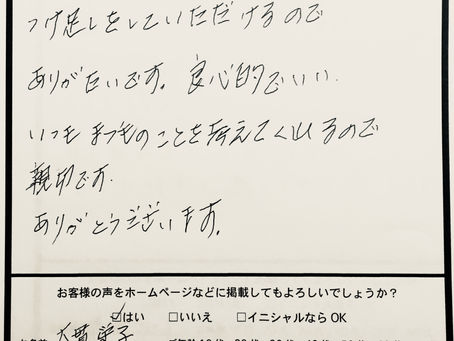 つけ足しをしていただけるので
ありがたいです。良心的でいい.
いつも まつものことを考えてくれるので
親切です.
ありがとうございます。
お客様の声をホームページなどに掲載してもよろしいでしょうか？
☑はい □いいえ □イニシャルなら OK